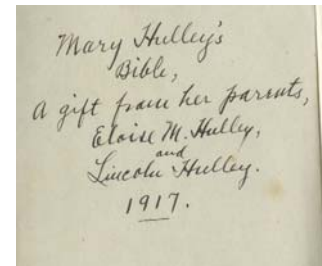 Mary Hulley's
Bible,
A gift from her parents,
Eloise M. Hulley,
and
Lincoln Hulley.
1917.